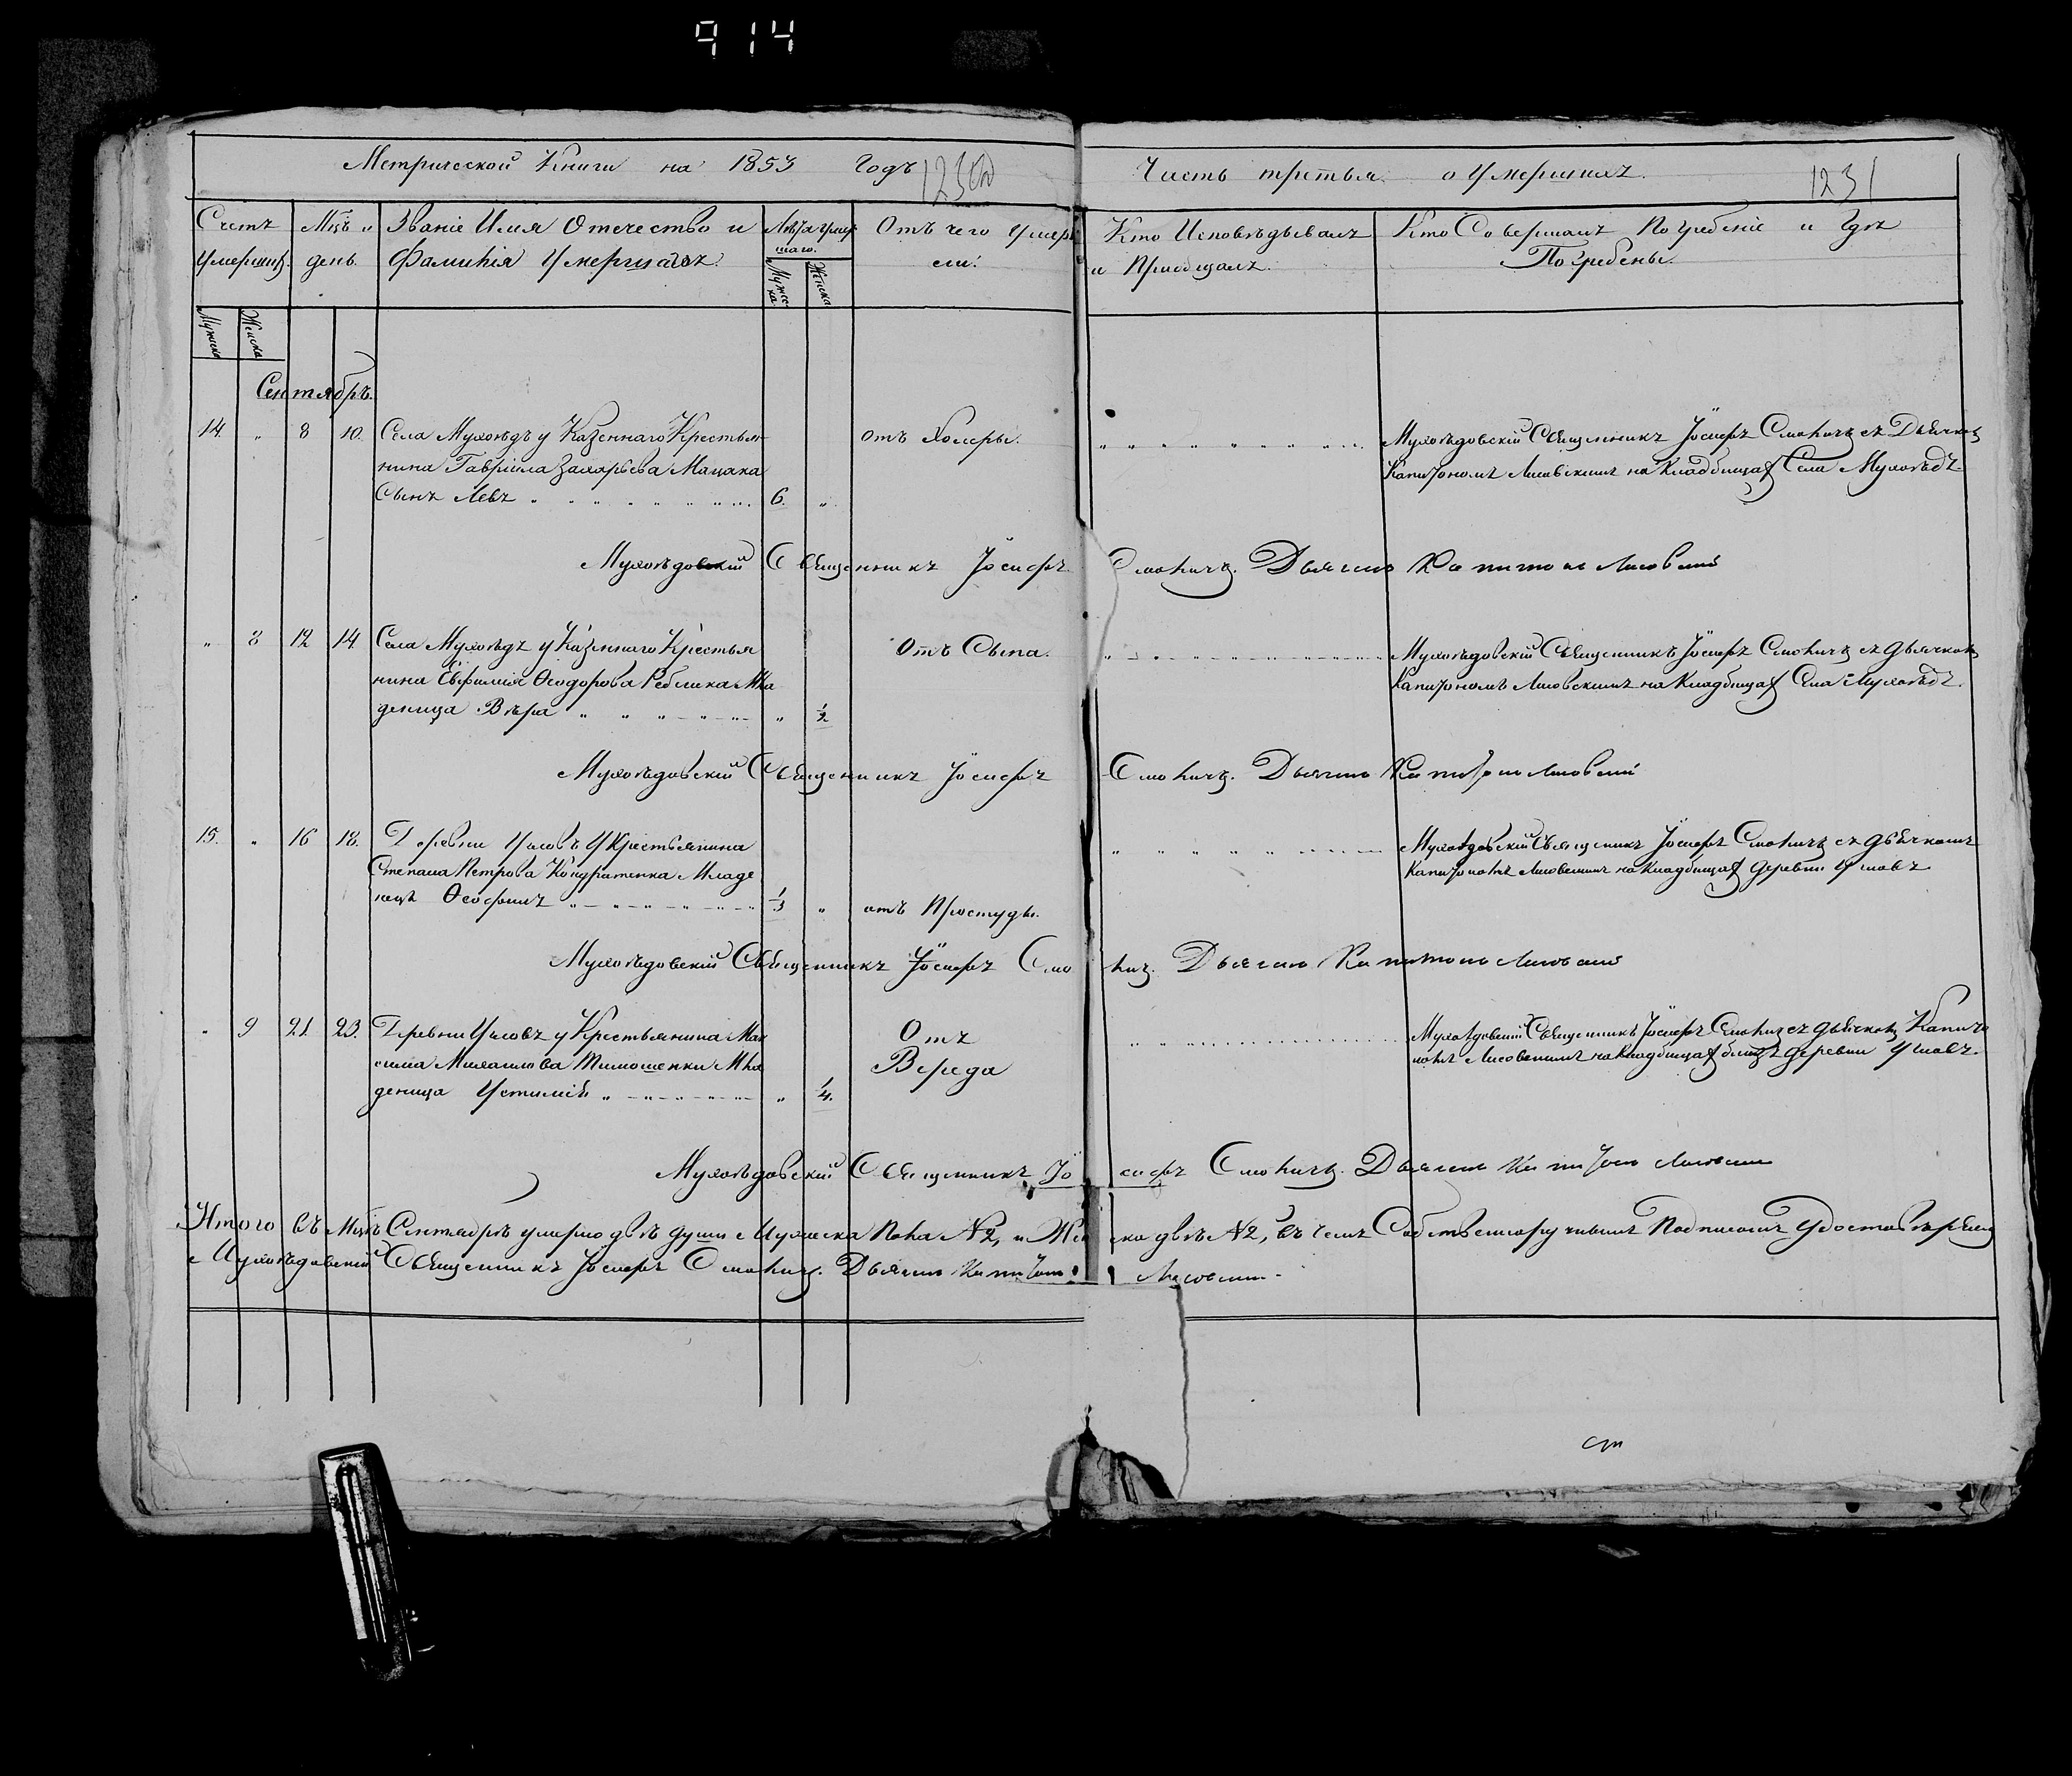 914
Метрической Книги на 1853 Годъ
Часть третья о Умершихъ.
1231
Счетъ Умершихъ.
Мцъ и день.
Званіе Имя Отечество и
Фамилія Умершаго
Лѣта умер
шаго.
Отъ чего Умер
ли.
Кто Исповѣдывалъ
и Приобщалъ.
Кто Совершалъ Погребеніе и Гдѣ
Погребены.
Мужска
Женска
Мужес
ка
Женска
Сентябрь.
14. " 8 10. Села Мухоѣдъ у Казеннаго Крестья-
нина Гавріила Захарьева Мацака
Сынъ Левъ " 6. "
отъ Холеры.
Мухоѣдовскій Священникъ Іосифъ съ Дьячкомъ
Капитономъ Лисовскимъ на Кладбищах Села Мухоѣдъ
Мухоѣдовскій Священникъ Іосифъ Дьячекъ Капитонъ Лисовскій
" 8 12 14. Села Мухоѣдъ у Казеннаго Крестья
нина Евфимія Ѳеодорова Мла
деница Вѣра " " 1/2
Отъ Сыпа.
Мухоѣдовскій Священникъ Іосифъ съ дьячкомъ
Капитономъ Лисовскимъ на Кладбищах Села Мухоѣдъ.
Мухоѣдовскій Священникъ Іосифъ Дьячекъ Капитонъ Лисовскій
15. " 16 18. Деревни У Крестьянина
Степана Петрова Кондратенка Младе
нецъ " 1/3 " отъ Простуды.
Мухоѣдовскій Священникъ Іосифъ съ дьячкомъ
Капитономъ Лисовскимъ на Кладбищах деревни
Мухоѣдовскій Священникъ Іосифъ Дьячекъ Капитонъ Лисовскій
" 9 21. 23. Деревни у Крестьянина Мак
сима Михаилова Тимошенки Мла
деница " " 1/4.
Отъ
Вереда
Мухоѣдовскій Священникъ Іосифъ съ дьячкомъ Капито
номъ Лисовскимъ на Кладбищах деревни
Мухоѣдовскій Священникъ Іосифъ Дьячекъ Капитонъ Лисовскій
Итого въ Мцѣ Сентябрѣ умерло двѣ души Мужеска Пола №2, и Женска двѣ №2, въ чемъ Собственноручнымъ Подписомъ
Мухоѣдовскій Священникъ Іосифъ Дьячекъ Капитонъ Лисовскій